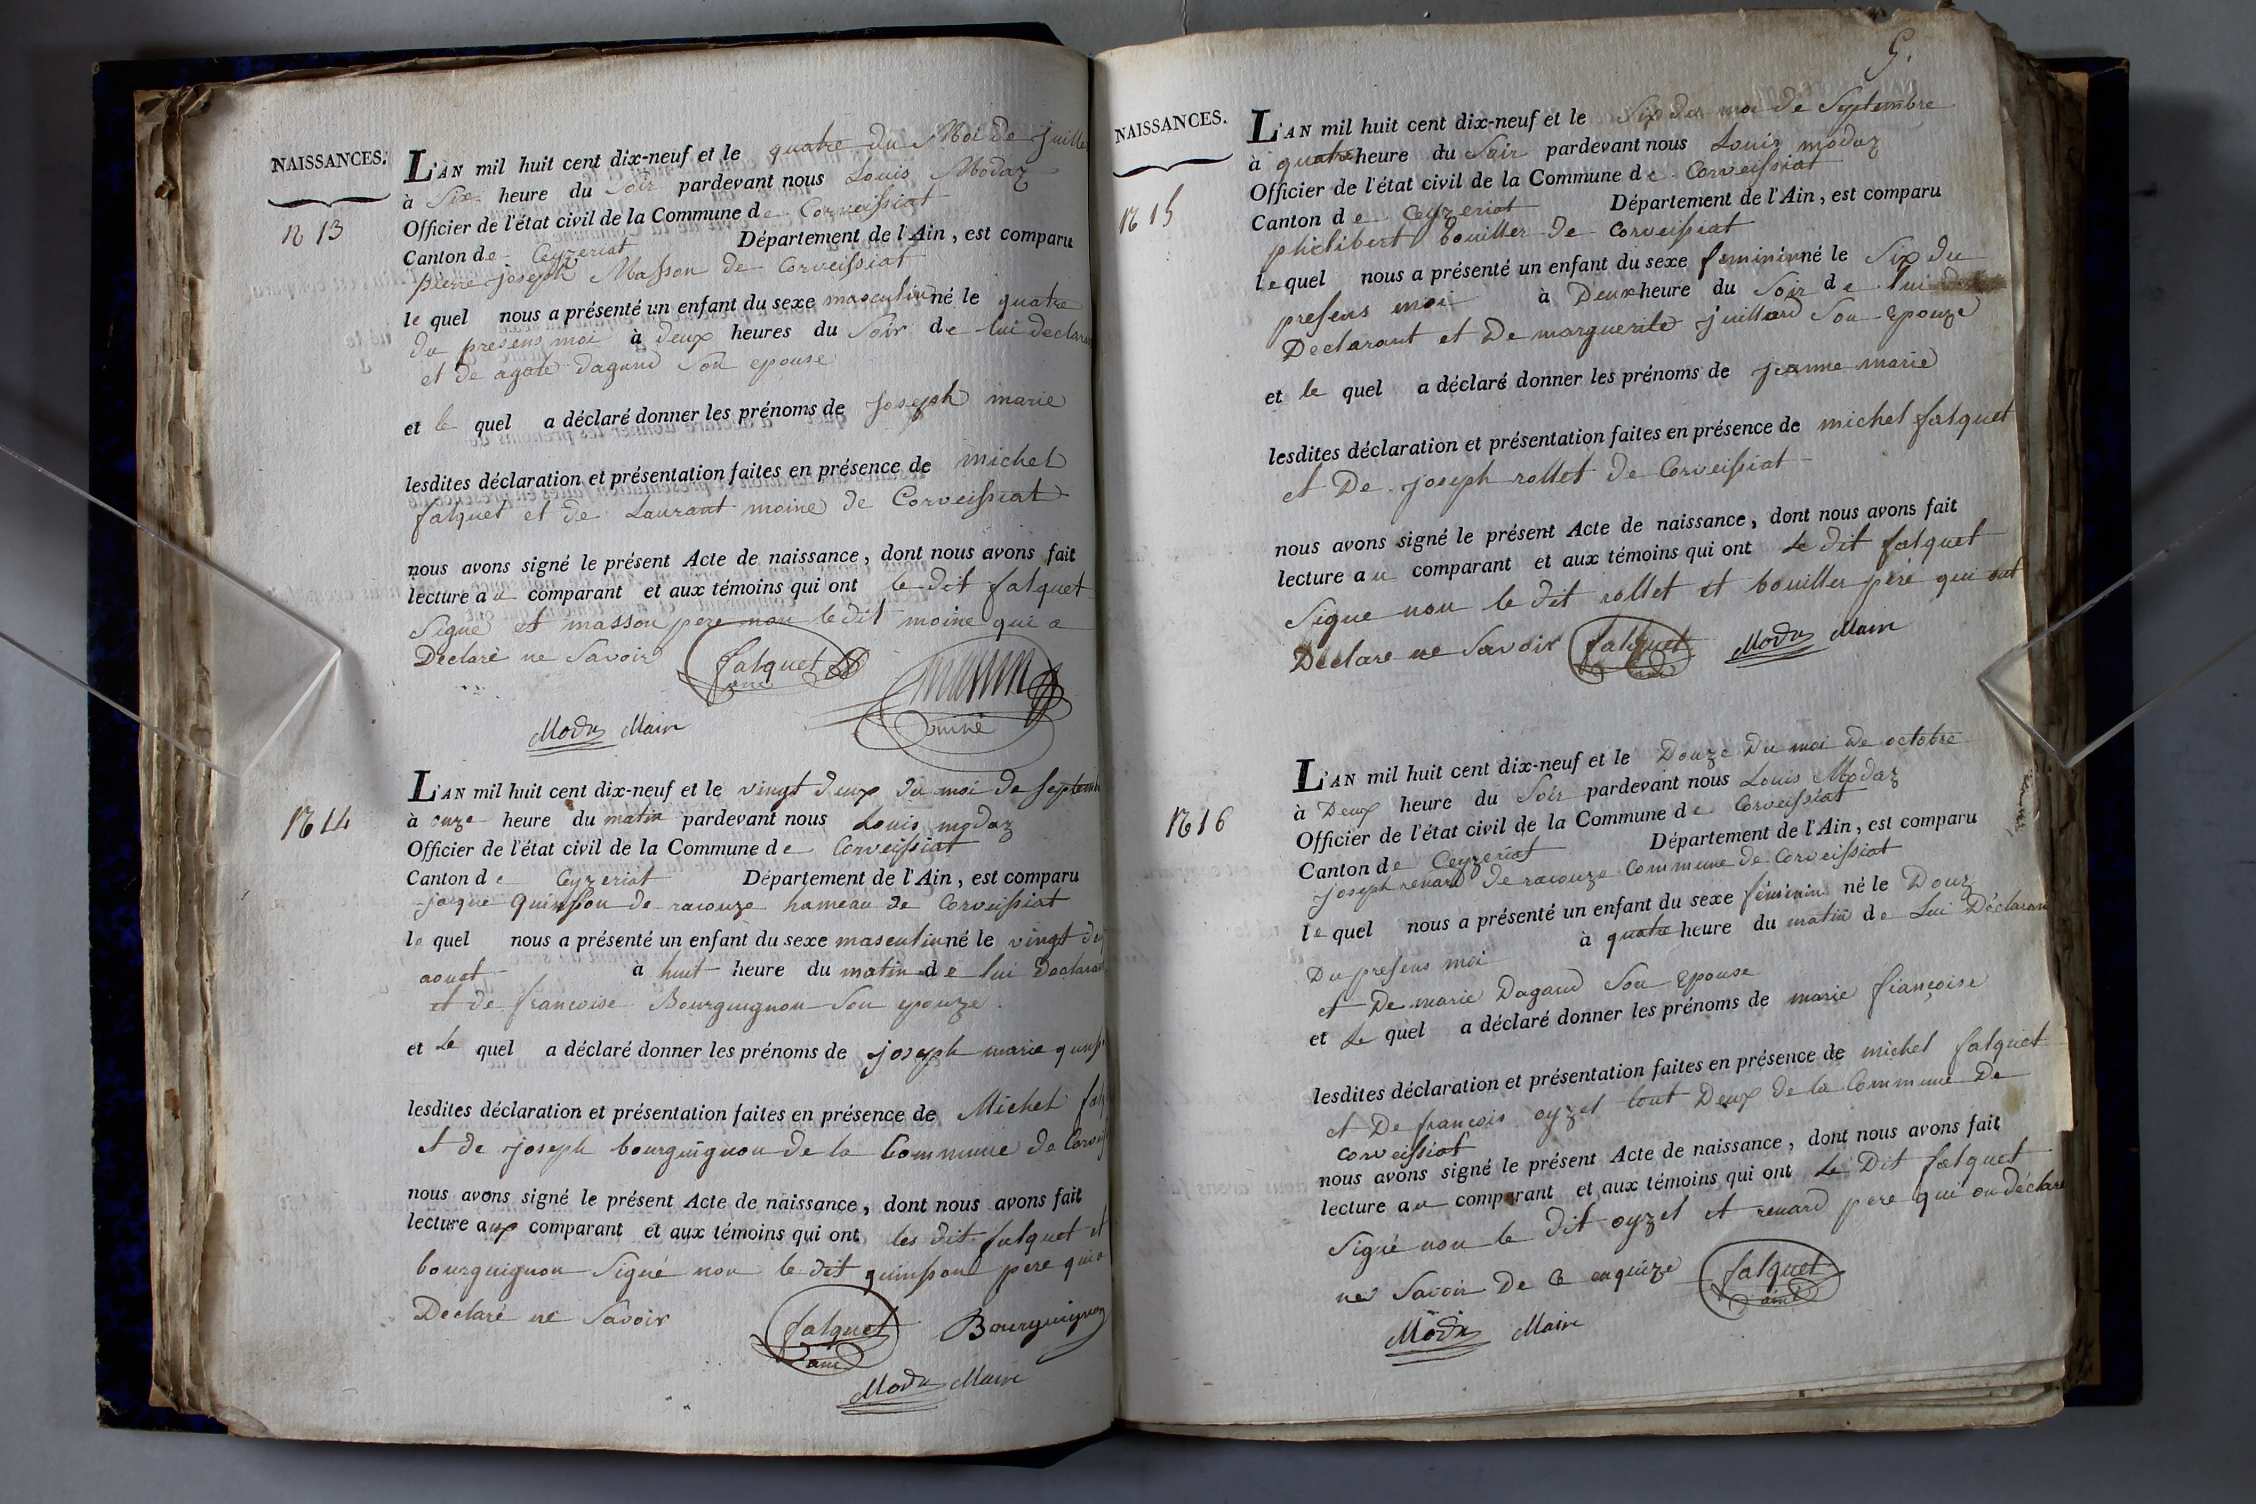 NAISSANCES.
N 13
L'AN mil huit cent dix-neuf et le quatre du Moi de juille
à Six heure du Soir pardevant nous Louis Modaz
Officier de l'état civil de la Commune de Corveissiat
Canton de Ceyzeriat Département de l'Ain, est comparu
pierre joseph Masson de Corveissiat
le quel nous a présenté un enfant du sexe masculin né le quatre
du presens moi à deux heures du Soir de lui declarant
et de agate dagand Son epouse
et le quel a déclaré donner les prénoms de joseph marie
lesdites déclaration et présentation faites en présence de michel
falquet et de Laurant moine de Corveissiat
nous avons signé le présent Acte de naissance, dont nous avons fait
lecture au comparant et aux témoins qui ont le dit falquet
Signé et masson pere non le dit moine qui a
Declaré ne Savoir falquet ainé masson
Modaz Maire ainé
N 14
L'AN mil huit cent dix-neuf et le vingt deux du moi de Septemb
à onze heure du matin pardevant nous Louis modaz
Officier de l'état civil de la Commune de Corveissiat
Canton de Ceyzeriat Département de l'Ain, est comparu
jacque quinson de racouze hameau de Corveissiat
le quel nous a présenté un enfant du sexe masculin né le vingt de
aouet à huit heure du matin de lui Declarant
et de francoise Bourguignon Son epouze
et le quel a déclaré donner les prénoms de joseph marie quins
lesdites déclaration et présentation faites en présence de Michel falq
et de joseph bourguignon de la Commune de Corveiss
nous avons signé le présent Acte de naissance, dont nous avons fait
lecture aux comparant et aux témoins qui ont les dit falquet et
bourguignon Signé non le dit quinson pere qui a
Declaré ne Savoir falquet Bourguignon
ainé
Modaz Maire
5.
NAISSANCES.
N 15
L'AN mil huit cent dix-neuf et le Six du moi de Septembre
à quatre heure du Soir pardevant nous Louis modaz
Officier de l'état civil de la Commune de Corveissiat
Canton de Ceyzeriat Département de l'Ain, est comparu
philibert bouiller de Corveissiat
le quel nous a présenté un enfant du sexe feminin né le Six du
presens moi à Deux heure du Soir de lui
Declarant et De marguerite juillard Son Epouze
et le quel a déclaré donner les prénoms de jeanne marie
lesdites déclaration et présentation faites en présence de michel falquet
et De joseph rollet de Corveissiat
nous avons signé le présent Acte de naissance, dont nous avons fait
lecture au comparant et aux témoins qui ont Le dit falquet
Signe non le dit rollet et bouiller pere qui ont
Déclare ne Savoir falquet Modaz Maire
ainé
N 16
L'AN mil huit cent dix-neuf et le Douze Du moi De octobre
à Deux heure du Soir pardevant nous Louis Modaz
Officier de l'état civil de la Commune de Corveissiat
Canton de Ceyzeriat Département de l'Ain, est comparu
joseph renard de racouze Commune de Corveissiat
le quel nous a présenté un enfant du sexe féminin né le Douz
Du presens moi à quatre heure du matin de Lui Déclaran
et De marie Dagand Son Epouse
et Le quel a déclaré donner les prénoms de marie françoise
lesdites déclaration et présentation faites en présence de michel falquet
et De francois oyzel tout Deux de la Commune De
Corveissiat
nous avons signé le présent Acte de naissance, dont nous avons fait
lecture au comparant et aux témoins qui ont Le Dit falquet
Signé non le dit oyzel et renard pere qui on déclaré
ne Savoir De ce enquize falquet
ainé
Modaz Maire